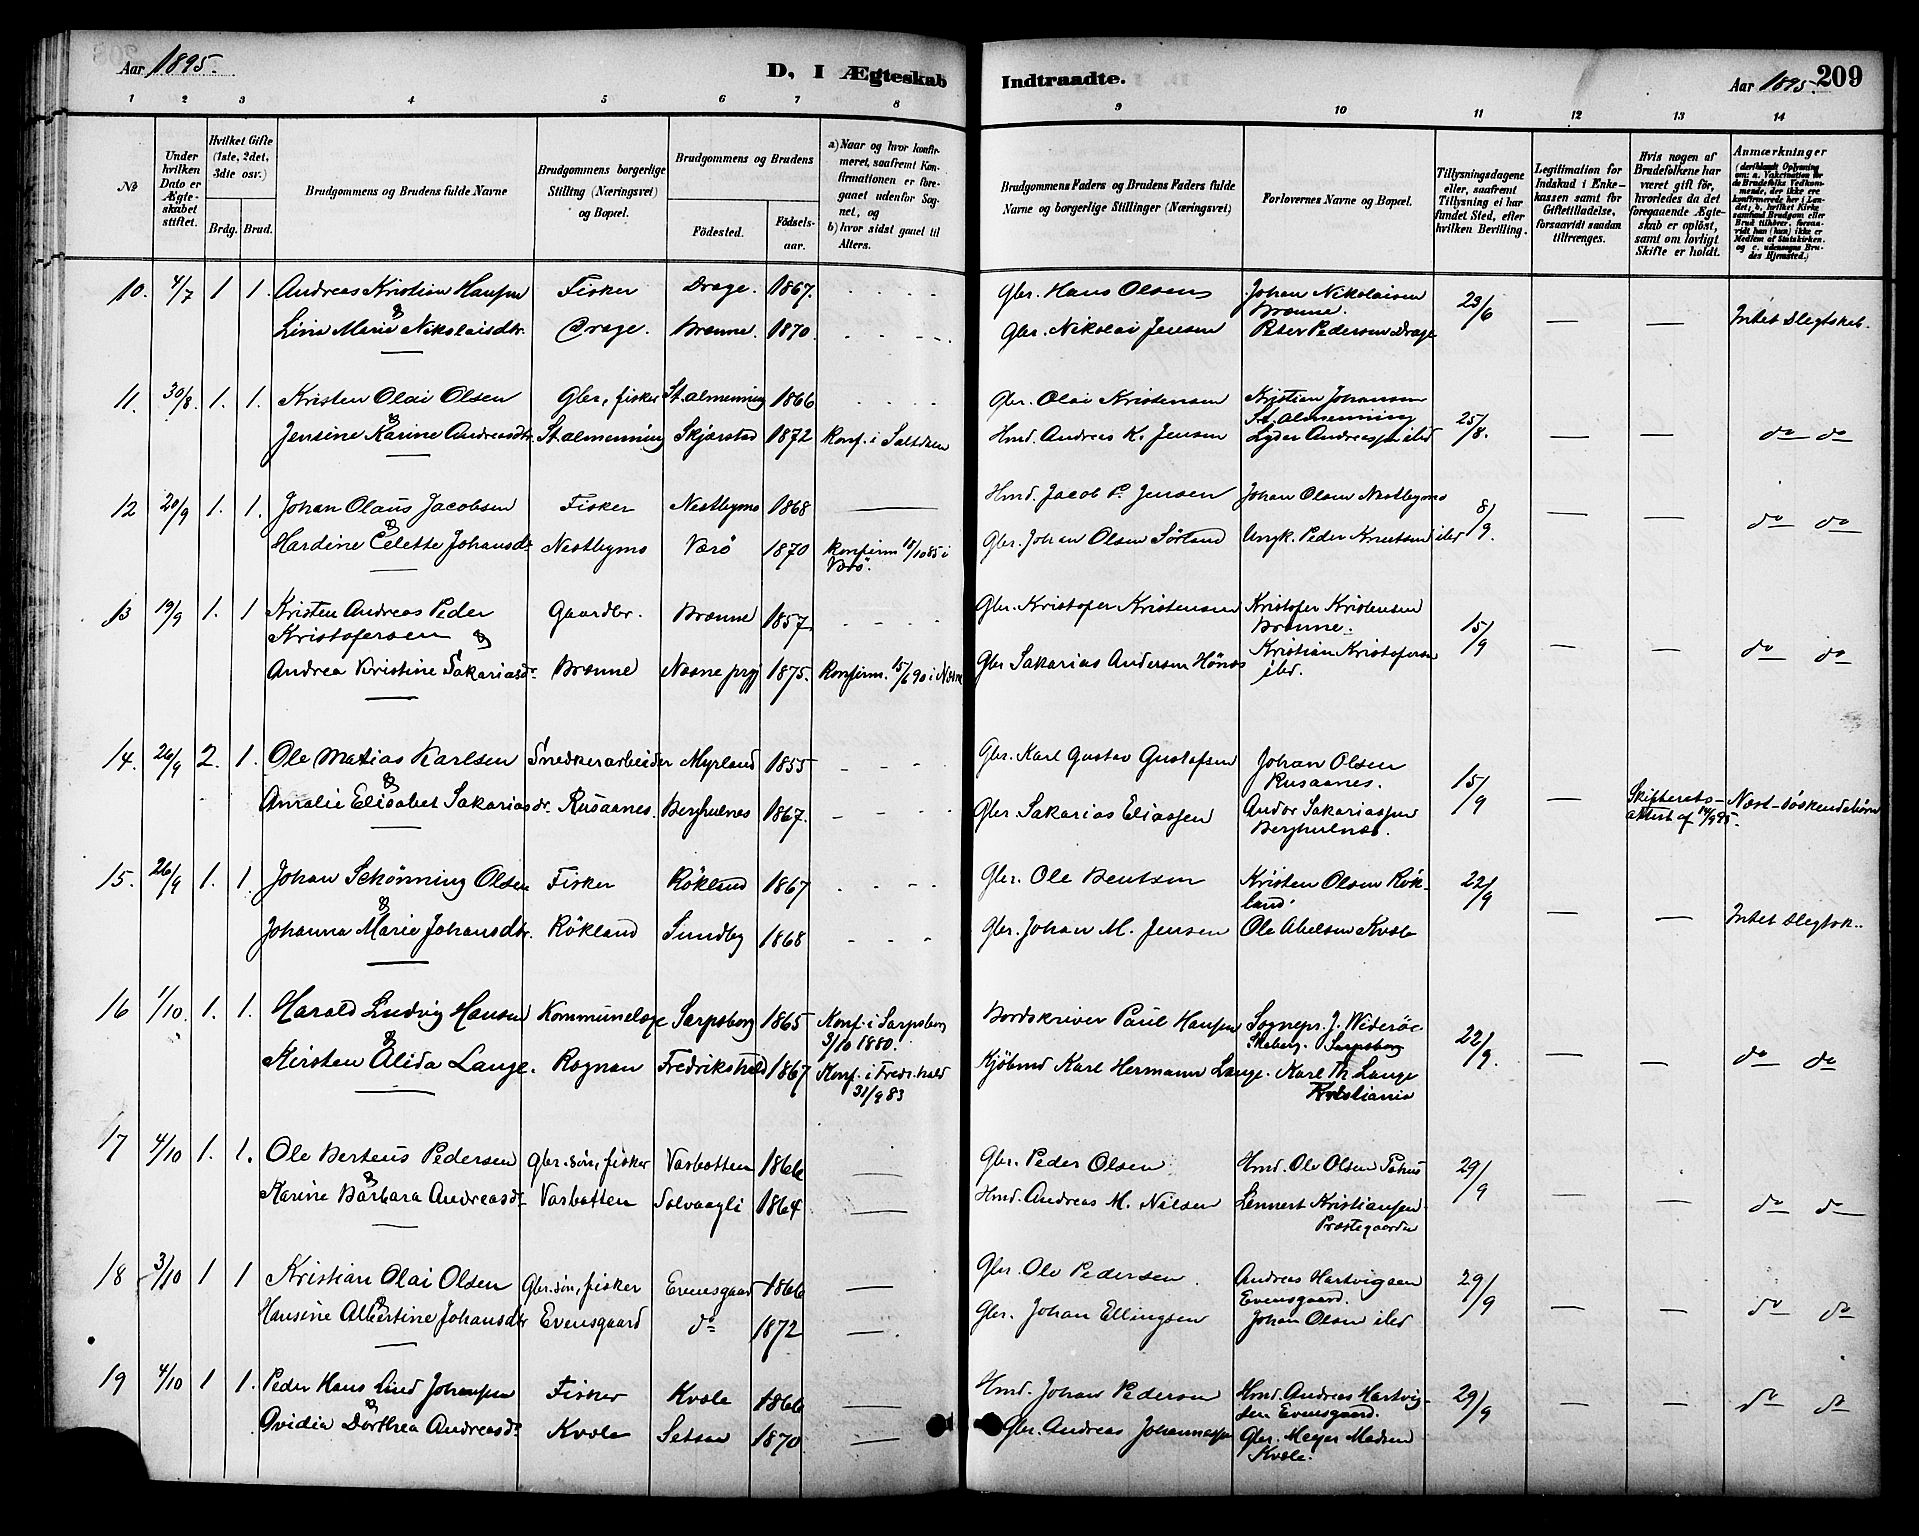 Aar 1895.
D, I Ægteskab Indtraadte.
Aar 1895. 209
1 2 3 4 5 6 7 8 9 10 11 12 13 14
No
Under hvilken Dato er Ægteskabet stiftet.
Hvilket Gifte (1ste, 2det, 3die osv.)
Brdg. Brud.
Brudgommens og Brudens fulde Navne
Brudgommens borgerlige Stilling (Næringsvei) og Bopæl.
Brudgommens og Brudens
Födested. Födsels-aar.
a) Naar og hvor konfirmeret, saafremt Konfirmationen er foregaaet udenfor Sognet, og
b) hvor sidst gaaet til Alters.
Brudgommens Faders og Brudens Faders fulde Navne og borgerlige Stillinger (Næringsvei)
Forlovernes Navne og Bopæl.
Tillysningsdagene eller, saafremt Tillysning ei har fundet Sted, efter hvilken Bevilling.
Legitimation for Indskud i Enkekassen samt for Giftetilladelse, forsaavidt saadan tiltrænges.
Hvis nogen af Brudefolkene har været gift før, hvorledes da det foregaaende Ægteskab er opløst, samt om lovligt Skifte er holdt.
Anmærkninger
(deriblandt Oplysning om: a. Vakcination for de Brudefolks Vedkommende, der ikke ere konfirmerede her i Landet; b. hvilket Kirkesamfund Brudgom eller Brud tilhører, forsaavidt han (hun) ikke er Medlem af Statskirken, og c. udensogns Brudes Hjemsted.)
10. 4/7 1 1. Andreas Kristian Hansen Fisker Drage. 1867. Gbr. Hans Olsen Johan Nikolaisen Brænne. 23/6 — — Intet Slegtskab.
& Lina Marie Nikolaisdtr. Drage. Brænne. 1870. Gbr. Nikolai Jensen Peter Pedersen Drage
11. 30/8. 1. 1. Kristen Olai Olsen Gbr, fisker St. almenning 1866 Gbr. Olai Kristensen Kristian Johansen St. almenning 25/8. — — do do
& Jensine Karine Andreasdtr. St. almenning Skjærstad 1872 Konf. i Saltdalen Hmd. Andreas K. Jensen Lyder Andreassen ibd
12 20/9 1. 1. Johan Olaus Jacobsen Fisker Nestbymo 1868 — Hmd. Jacob P. Jensen Johan Olsen Nestbymo 8/9. — — do do
& Hardine Celette Johansdr Nestbymo Værö 1870 Konfirm 18/10 85 i Værö. Gbr. Johan Olsen Sörland Ungk. Peder Knutsen ibd
13 19/9 1. 1 Kristen Andreas Peder Kristofersen Gaardbr. Brænne 1857. Gbr. Kristofer Kristensen Kristofer Kristensen Brænne. 15/9 — — do do
& Andrea Kristine Sakariasdr. Brænne Næsne prgj 1875. Konfirm. 15/6 90 i Næsne Gbr Sakarias Andersen Hönæs Kristian Kristofersen ibd.
14. 26/9 2. 1. Ole Matias Karlsen Snedkerarbeider Myrland 1855 Gbr. Karl Gustav Gustafsen Johan Olsen Rusaanes. 15/9 — Skifterets-attest af 14/9 95. Næst-söskendebörn
& Amalie Elisabet Sakariasdr. Rusaanes. Berghulnes 1867. Gbr Sakarias Eliassen Andor Sakariassen Berghulnæs.
15. 26/9 1. 1. Johan Schönning Olsen Fisker Rökland 1867 Gbr. Ole Bentsen Kristen Olsen Rök-land. 22/9 — — Intet Slegtsk..
& Johanna Marie Johansdtr. Rökland Sundby 1868 Gbr. Johan M. Jensen Ole Abelsen Kvæle
16 1/10. 1. 1. Harald Ludvig Hansen Kommunelæge Sarpsborg 1865 Konf. i Sarpsborg 3/10 1880. Bordskriver Paul Hansen Sognepr. J. Wideröe Skeberg. Sarpsborg 22/9. — — do do
& Kirsten Alida Lange. Rognan Fredrikshald 1867 Konf. i Fredr.hald 31/9 83 Kjöbmd Karl Hermann Lange. Karl Th Lange Kristiania
17 4/10 1. 1. Ole Berteus Pedersen Gbr.sön, fisker Vasbotten 1866 — Gbr. Peder Olsen Hmd. Ole Olsen 29/9 — — do do
& Karine Barbara Andreasdr. Vasbotten Solvaagli 1864 — Hmd. Andreas M. Nilsen Lennert Kristiansen Præstegaarden
18 3/10 1 1 Kristian Olai Olsen Gbr.sön, fisker Evensgaard 1866 — Gbr. Ole Pedersen. Andreas Hartvigsen Evensgaard. 29/9 — — do do
& Hansine Albertine Johansdtr Evensgaard do 1872 — Gbr. Johan Ellingsen Johan Olsen ibd
19 4/10 1 1. Peder Hans Lind Johansen Fisker Kvæle 1866 — Hmd. Johan Pedersen Hmd. Andreas Hartvig-sen Evensgaard. 29/9 — — do do
& Ovidia Dorthea Andreasdr Kvæle Setsaa 1870 — Gbr. Andreas Johannessen Gbr. Meyer Madsen Kvæle.